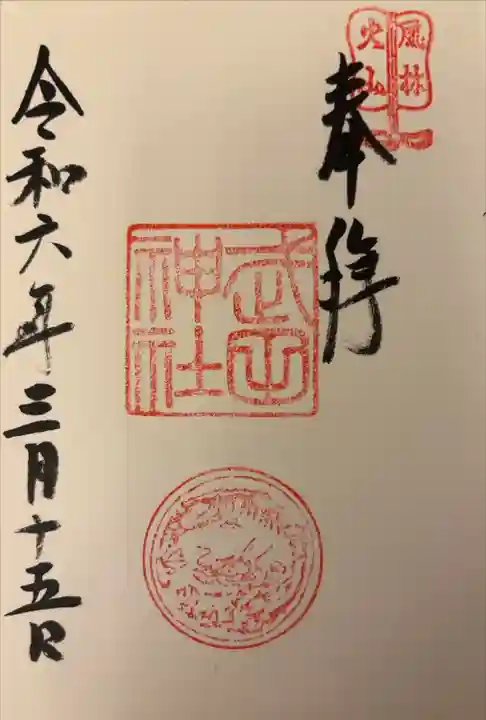 風林
火山
奉拝
武田
神社
令和六年三月十五日